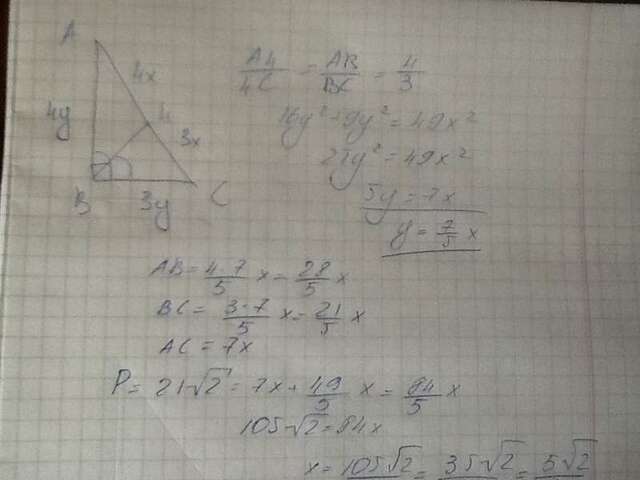 A
4x
4y
4
3x
B
3y
C
A4/4C = AB/BC = 4/3
16y² + 9y² = 49x²
25y² = 49x²
5y = 7x
y = 7/5 x
AB = 4·7/5 x = 28/5 x
BC = 3·7/5 x = 21/5 x
AC = 7x
P = 21√2 = 7x + 49/5 x = 84/5 x
105√2 = 84x
x = 105√2 = 35√2 = 5√2